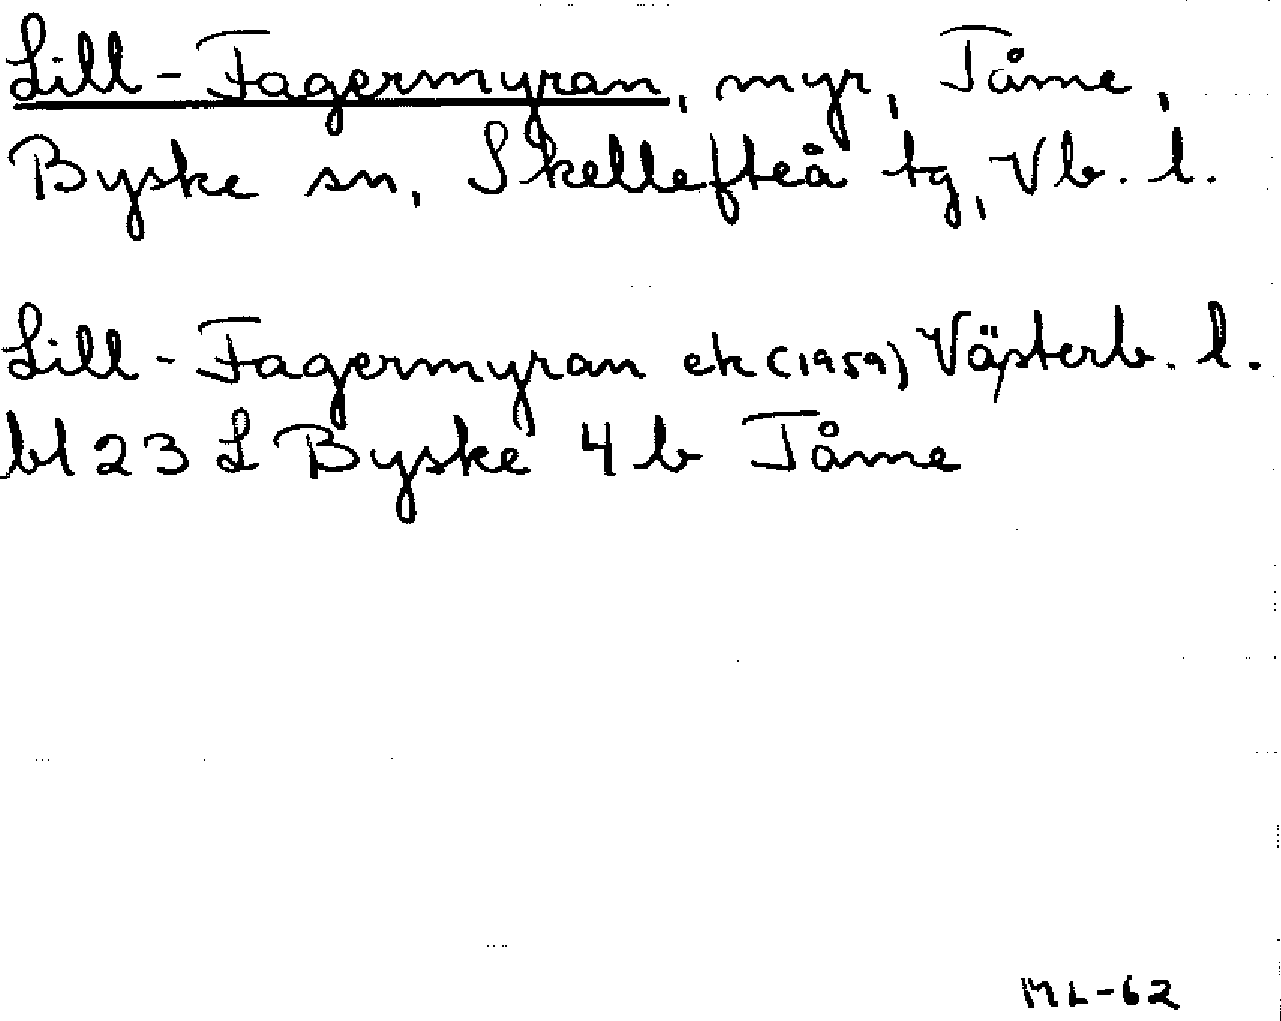 Lill-Fagermyran, myr, Tåme,
Byske sn, Skellefteå tg, Vb. l.
Lill-Fagermyran ek (1959) Västerb. l.
bl 23 L Byske 4 b Tåme
ML-62